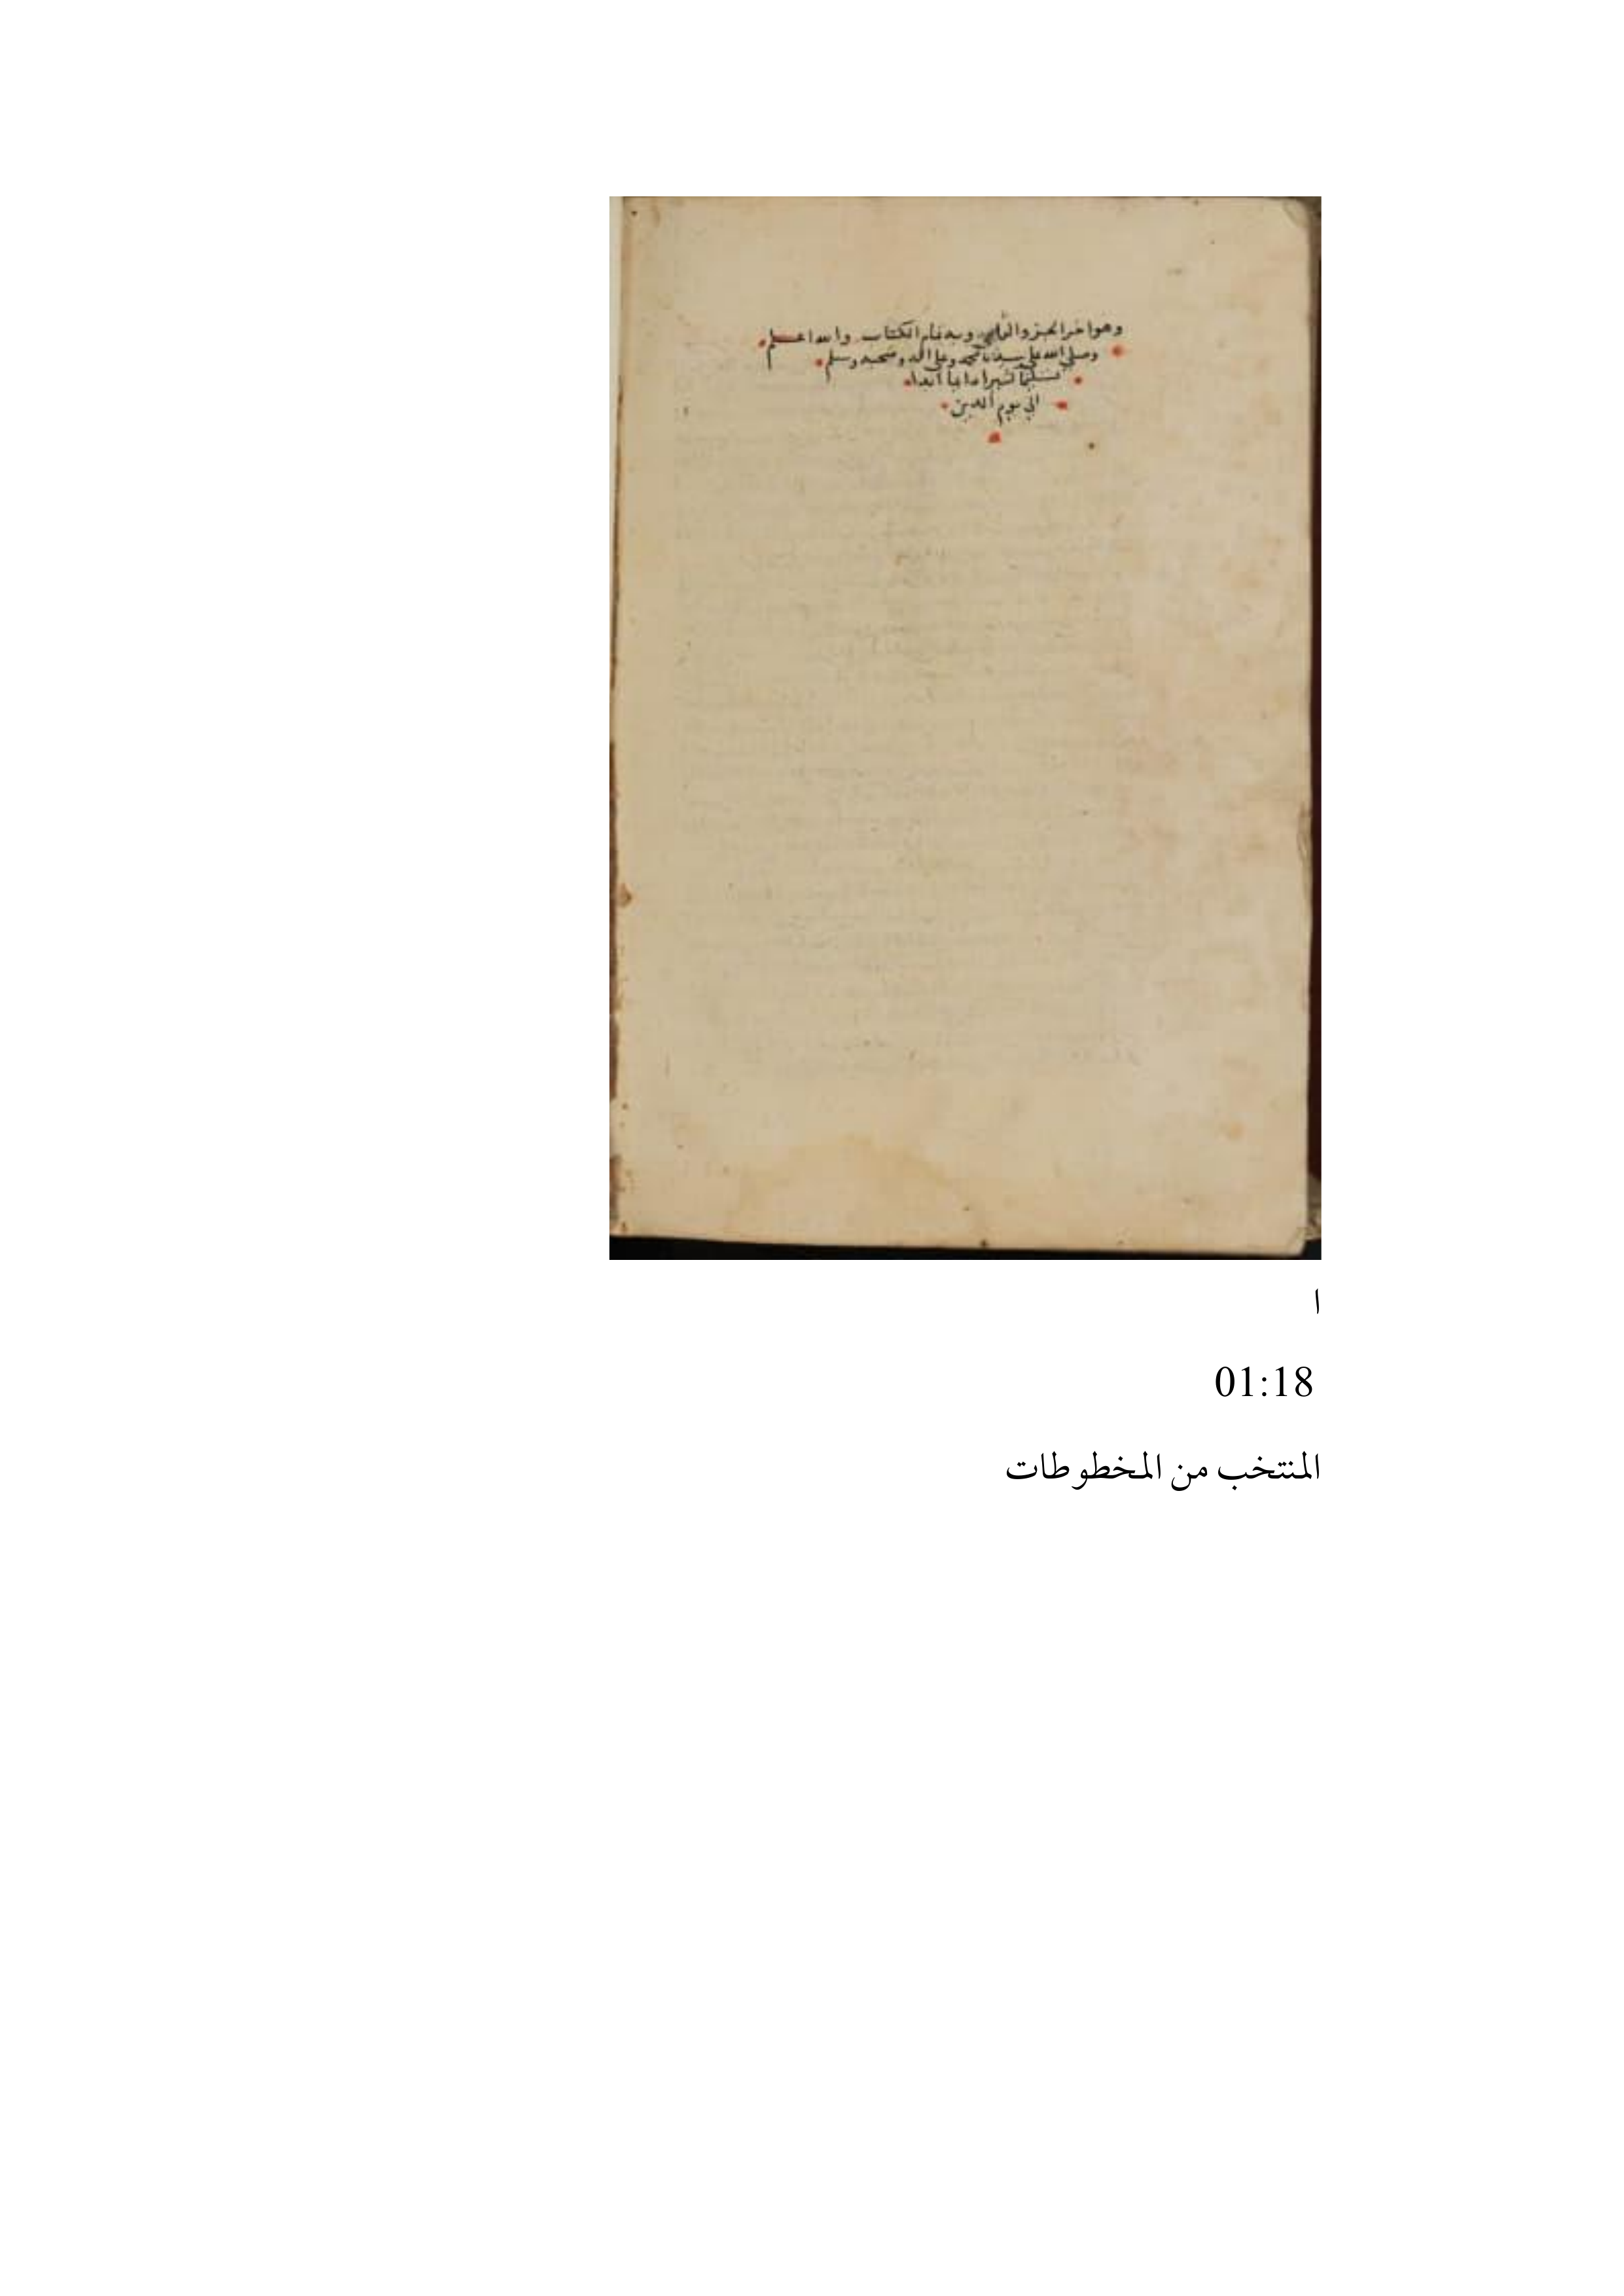 وهو اخر الجزو الثاني وبه تمام الكتاب والله اعلم
وصلى الله على سيدنا محمد وعلى اله وصحبه وسلم
تسليما كثيرا دايما ابدا
الى يوم الدين
ا
01:18
المنتخب من المخطوطات